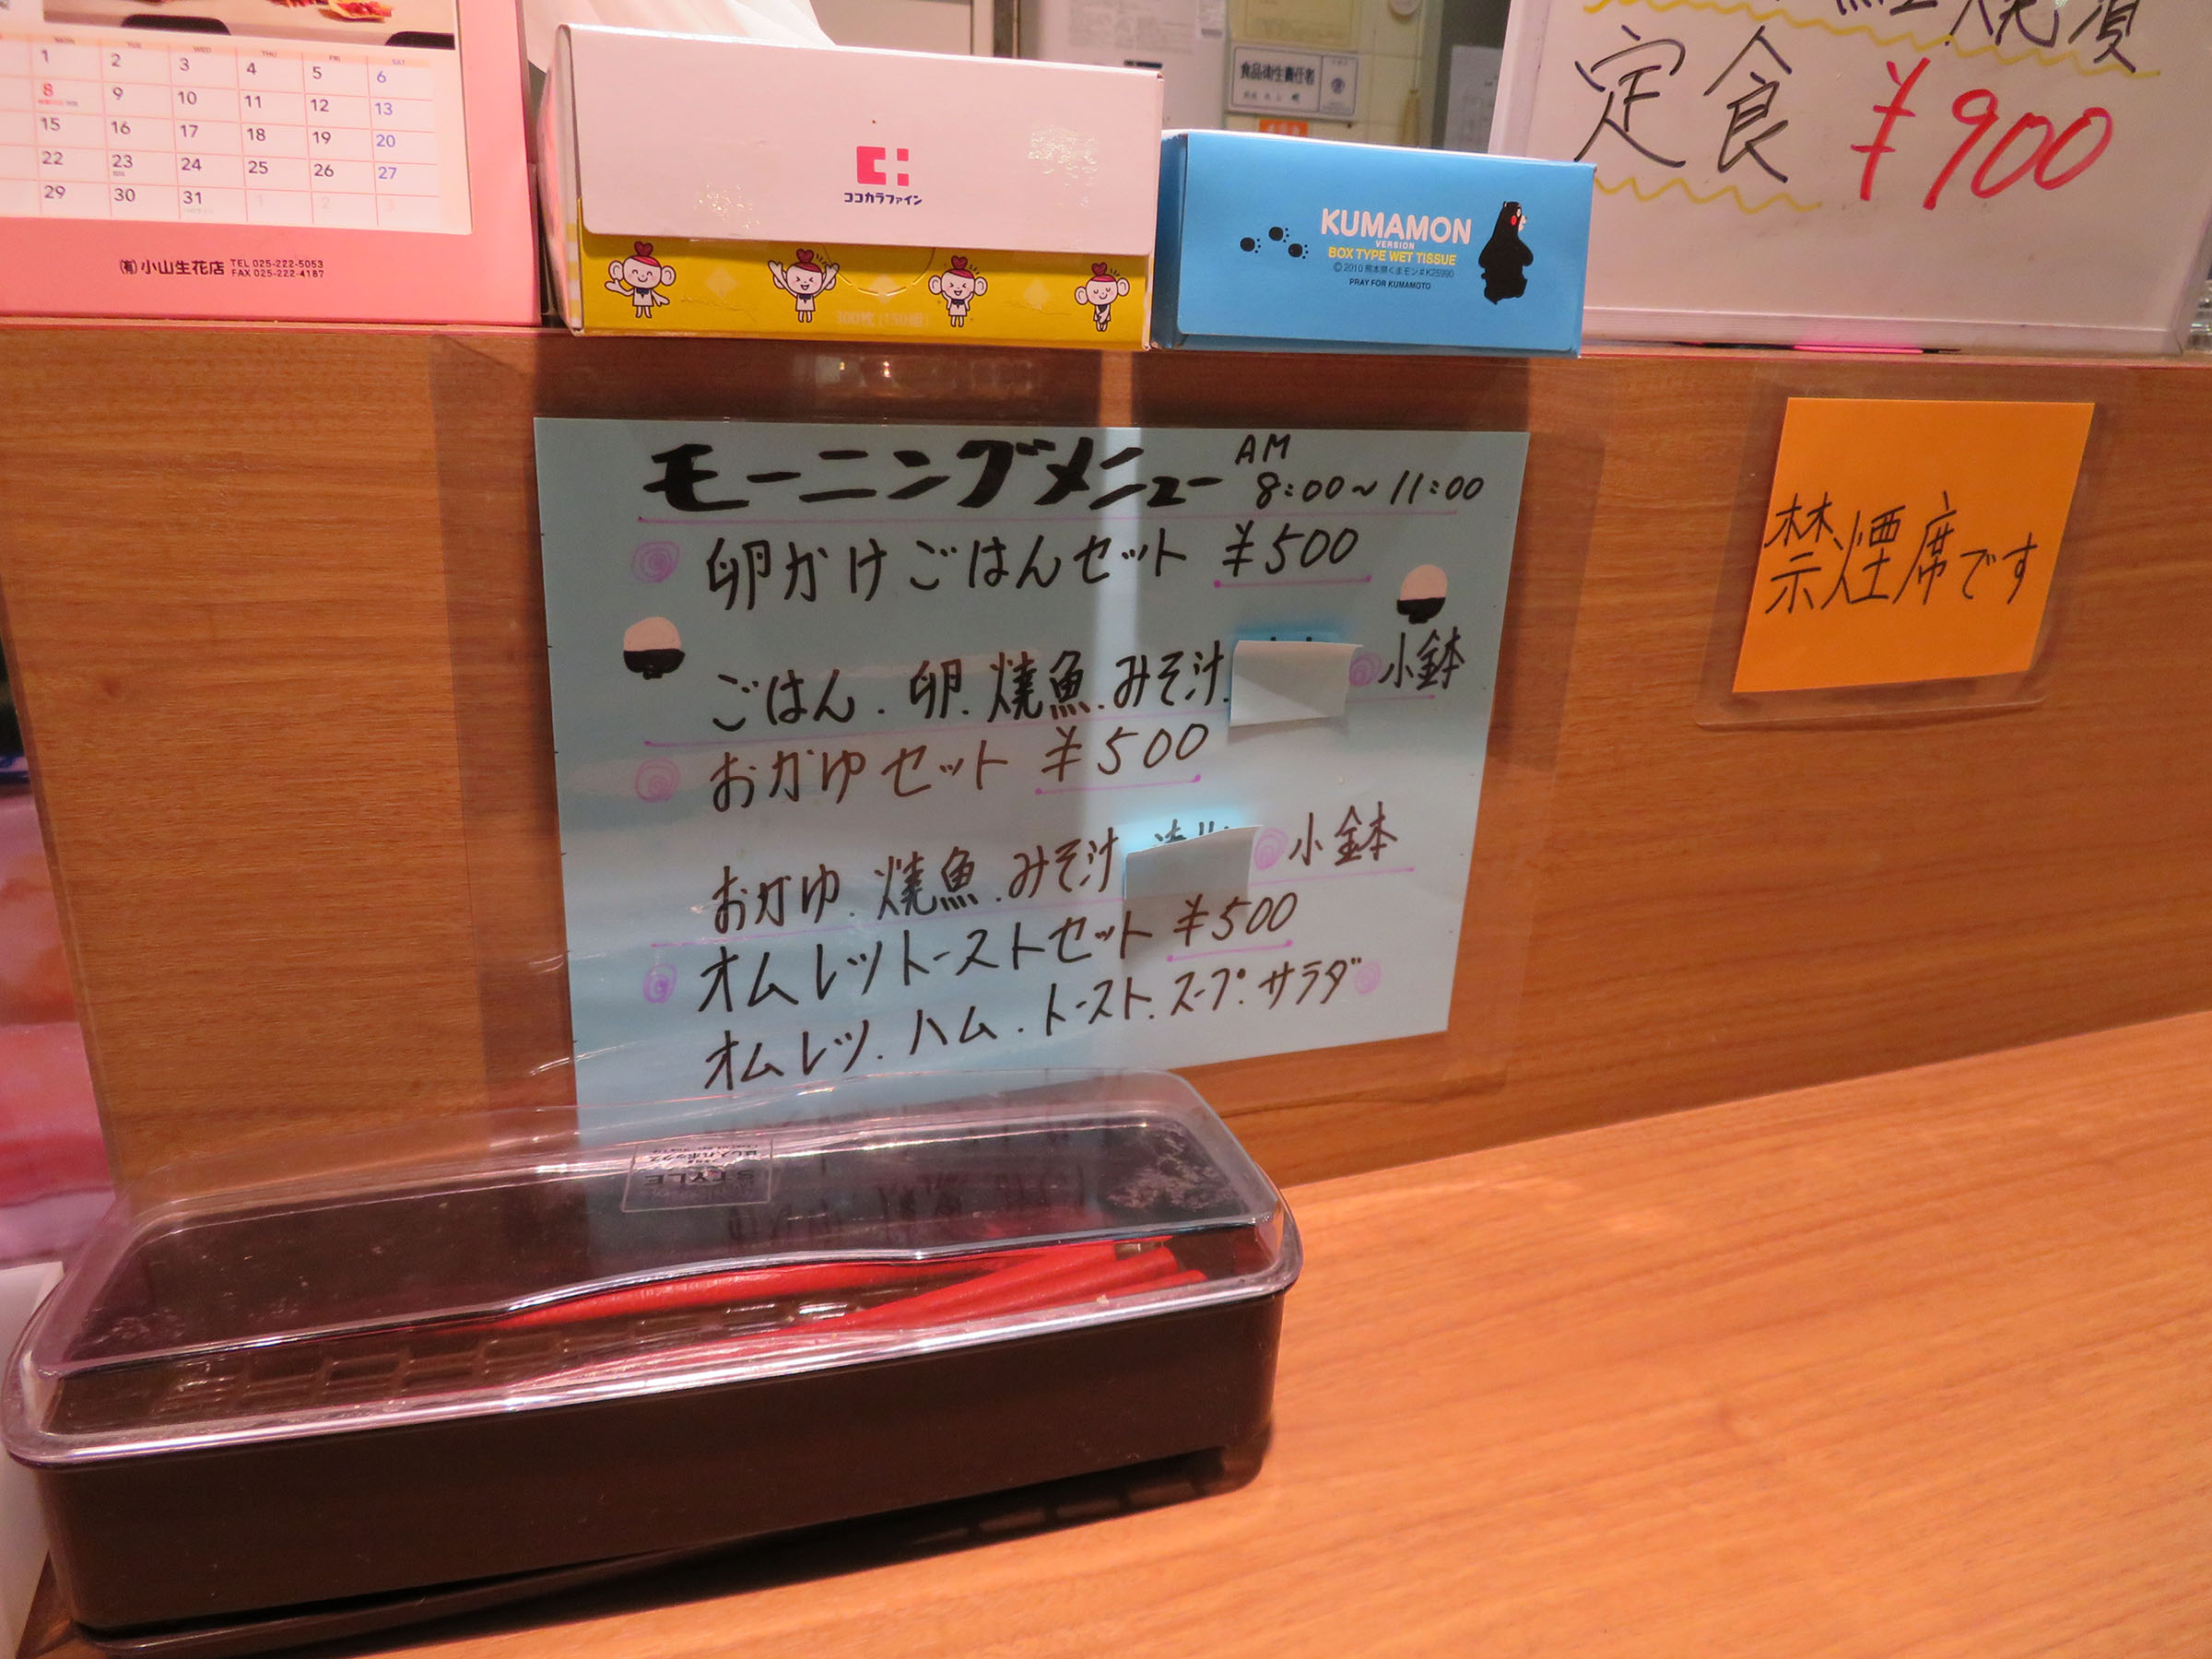 MON TUE WED THU FRI SAT
1 2 3 4 5 6
8 9 10 11 12 13
15 16 17 18 19 20
22 23 24 25 26 27
29 30 31 1 2 3
(有)小山生花店 TEL 025-222-5053
FAX 025-222-4187
ココカラファイン
300枚(150組)
食品衛生責任者
KUMAMON
VERSION
BOX TYPE WET TISSUE
©2010 熊本県くまモン#K25990
PRAY FOR KUMAMOTO
定食 ¥900
モーニングメニュー AM 8:00~11:00
卵かけごはんセット ¥500
ごはん.卵.焼魚.みそ汁. 小鉢
おかゆセット ¥500
おかゆ.焼魚.みそ汁 小鉢
オムレツトーストセット ¥500
オムレツ.ハム.トースト.スープ.サラダ
禁煙席です
STYLE
はし入れボックス